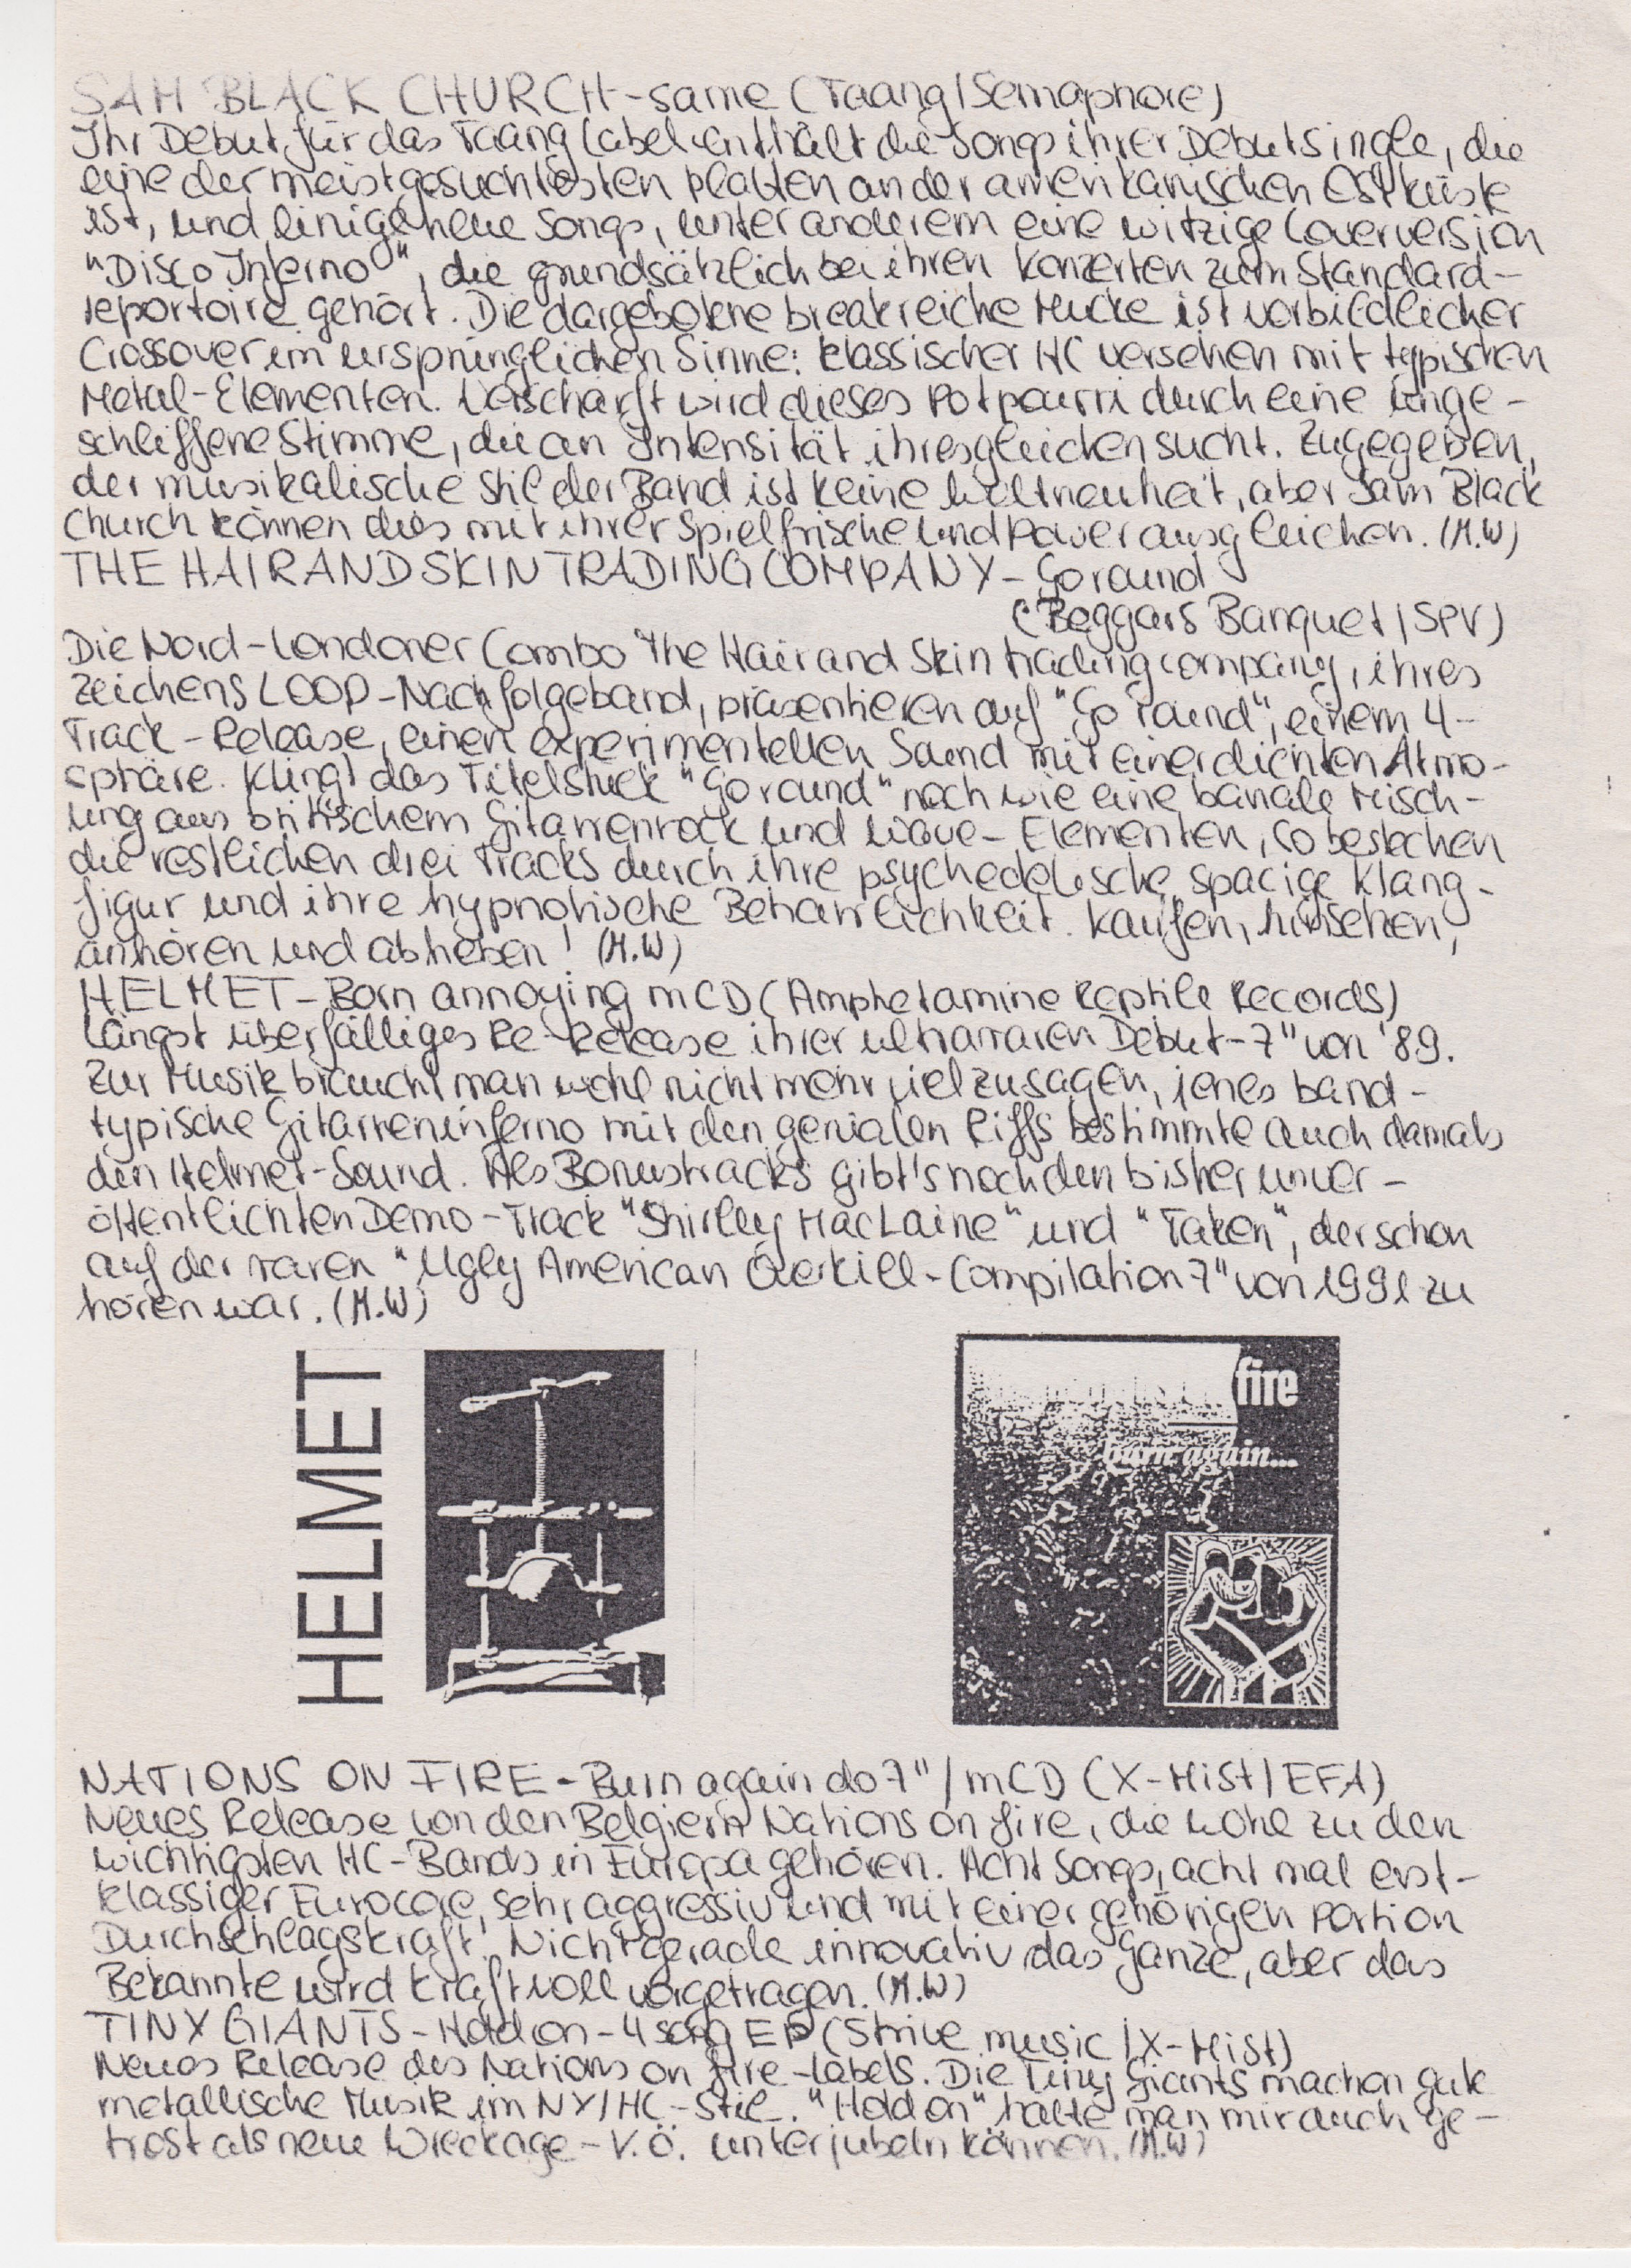 SAM BLACK CHURCH - same (Taang / Semaphore)
Ihr Debut für das Taang Label enthält die Songs ihrer Debutsingle, die
eine der meistgesuchtesten Platten an der amerikanischen Ostküste
ist, und einige neue Songs, unter anderem eine witzige Coverversion
"Disco Inferno", die grundsätzlich bei ihren Konzerten zum Standard-
reportoire gehört. Die dargebotene breakreiche Mucke ist vorbildlicher
Crossover im ursprünglichen Sinne: klassischer HC versehen mit typischen
Metal-Elementen. Verschärft wird dieses Potpourri durch eine unge-
schliffene Stimme, die an Intensität ihresgleichen sucht. Zugegeben,
der musikalische Stil der Band ist keine Weltneuheit, aber Sam Black
Church können dies mit ihrer Spielfrische und Power ausgleichen. (M.W)
THE HAIR AND SKIN TRADING COMPANY - Go round
(Beggars Banquet / SPV)
Die Nord-Londoner Combo The Hair and Skin trading company, ihres
Zeichens LOOP-Nachfolgeband, präsentieren auf "Go round", einem 4-
Track-Release, einen experimentellen Sound mit einer dichten Atmo-
sphäre. Klingt das Titelstück "Go round" noch wie eine banale Misch-
ung aus britischem Gitarrenrock und Wave-Elementen, so bestechen
die restlichen drei Tracks durch ihre psychedelische, spacige Klang-
figur und ihre hypnotische Beharrlichkeit. Kaufen, hinsetzen,
anhören und abheben! (M.W)
HELMET - Born annoying mCD (Amphetamine Reptile Records)
Längst überfälliges Re-Release ihrer ultrararen Debut-7" von '89.
Zur Musik braucht man wohl nicht mehr viel zu sagen, jenes band-
typische Gitarreninferno mit den genialen Riffs bestimmte auch damals
den Helmet-Sound. Als Bonustracks gibt's noch den bisher unver-
öffentlichten Demo-Track "Shirley MacLaine" und "Taken", der schon
auf der raren "Ugly American Overkill-Compilation 7" von 1991 zu
hören war. (M.W)
HELMET
fire
burn again...
NATIONS ON FIRE - Burn again do 7" / mCD (X-Mist / EFA)
Neues Release von den Belgiern Nations on fire, die wohl zu den
wichtigsten HC-Bands in Europa gehören. Acht Songs, acht mal erst-
klassiger Eurocore, sehr aggressiv und mit einer gehörigen Portion
Durchschlagskraft! Nicht gerade innovativ das Ganze, aber das
Bekannte wird kraftvoll vorgetragen. (M.W)
TINY GIANTS - Hold on - 4 song EP (Strive music / X-Mist)
Neues Release des Nations on fire-Labels. Die Tiny Giants machen gute
metallische Musik im NY/HC-Stil. "Hold on" hätte man mir auch ge-
trost als neue Wreckage-V.Ö. unterjubeln können. (M.W)